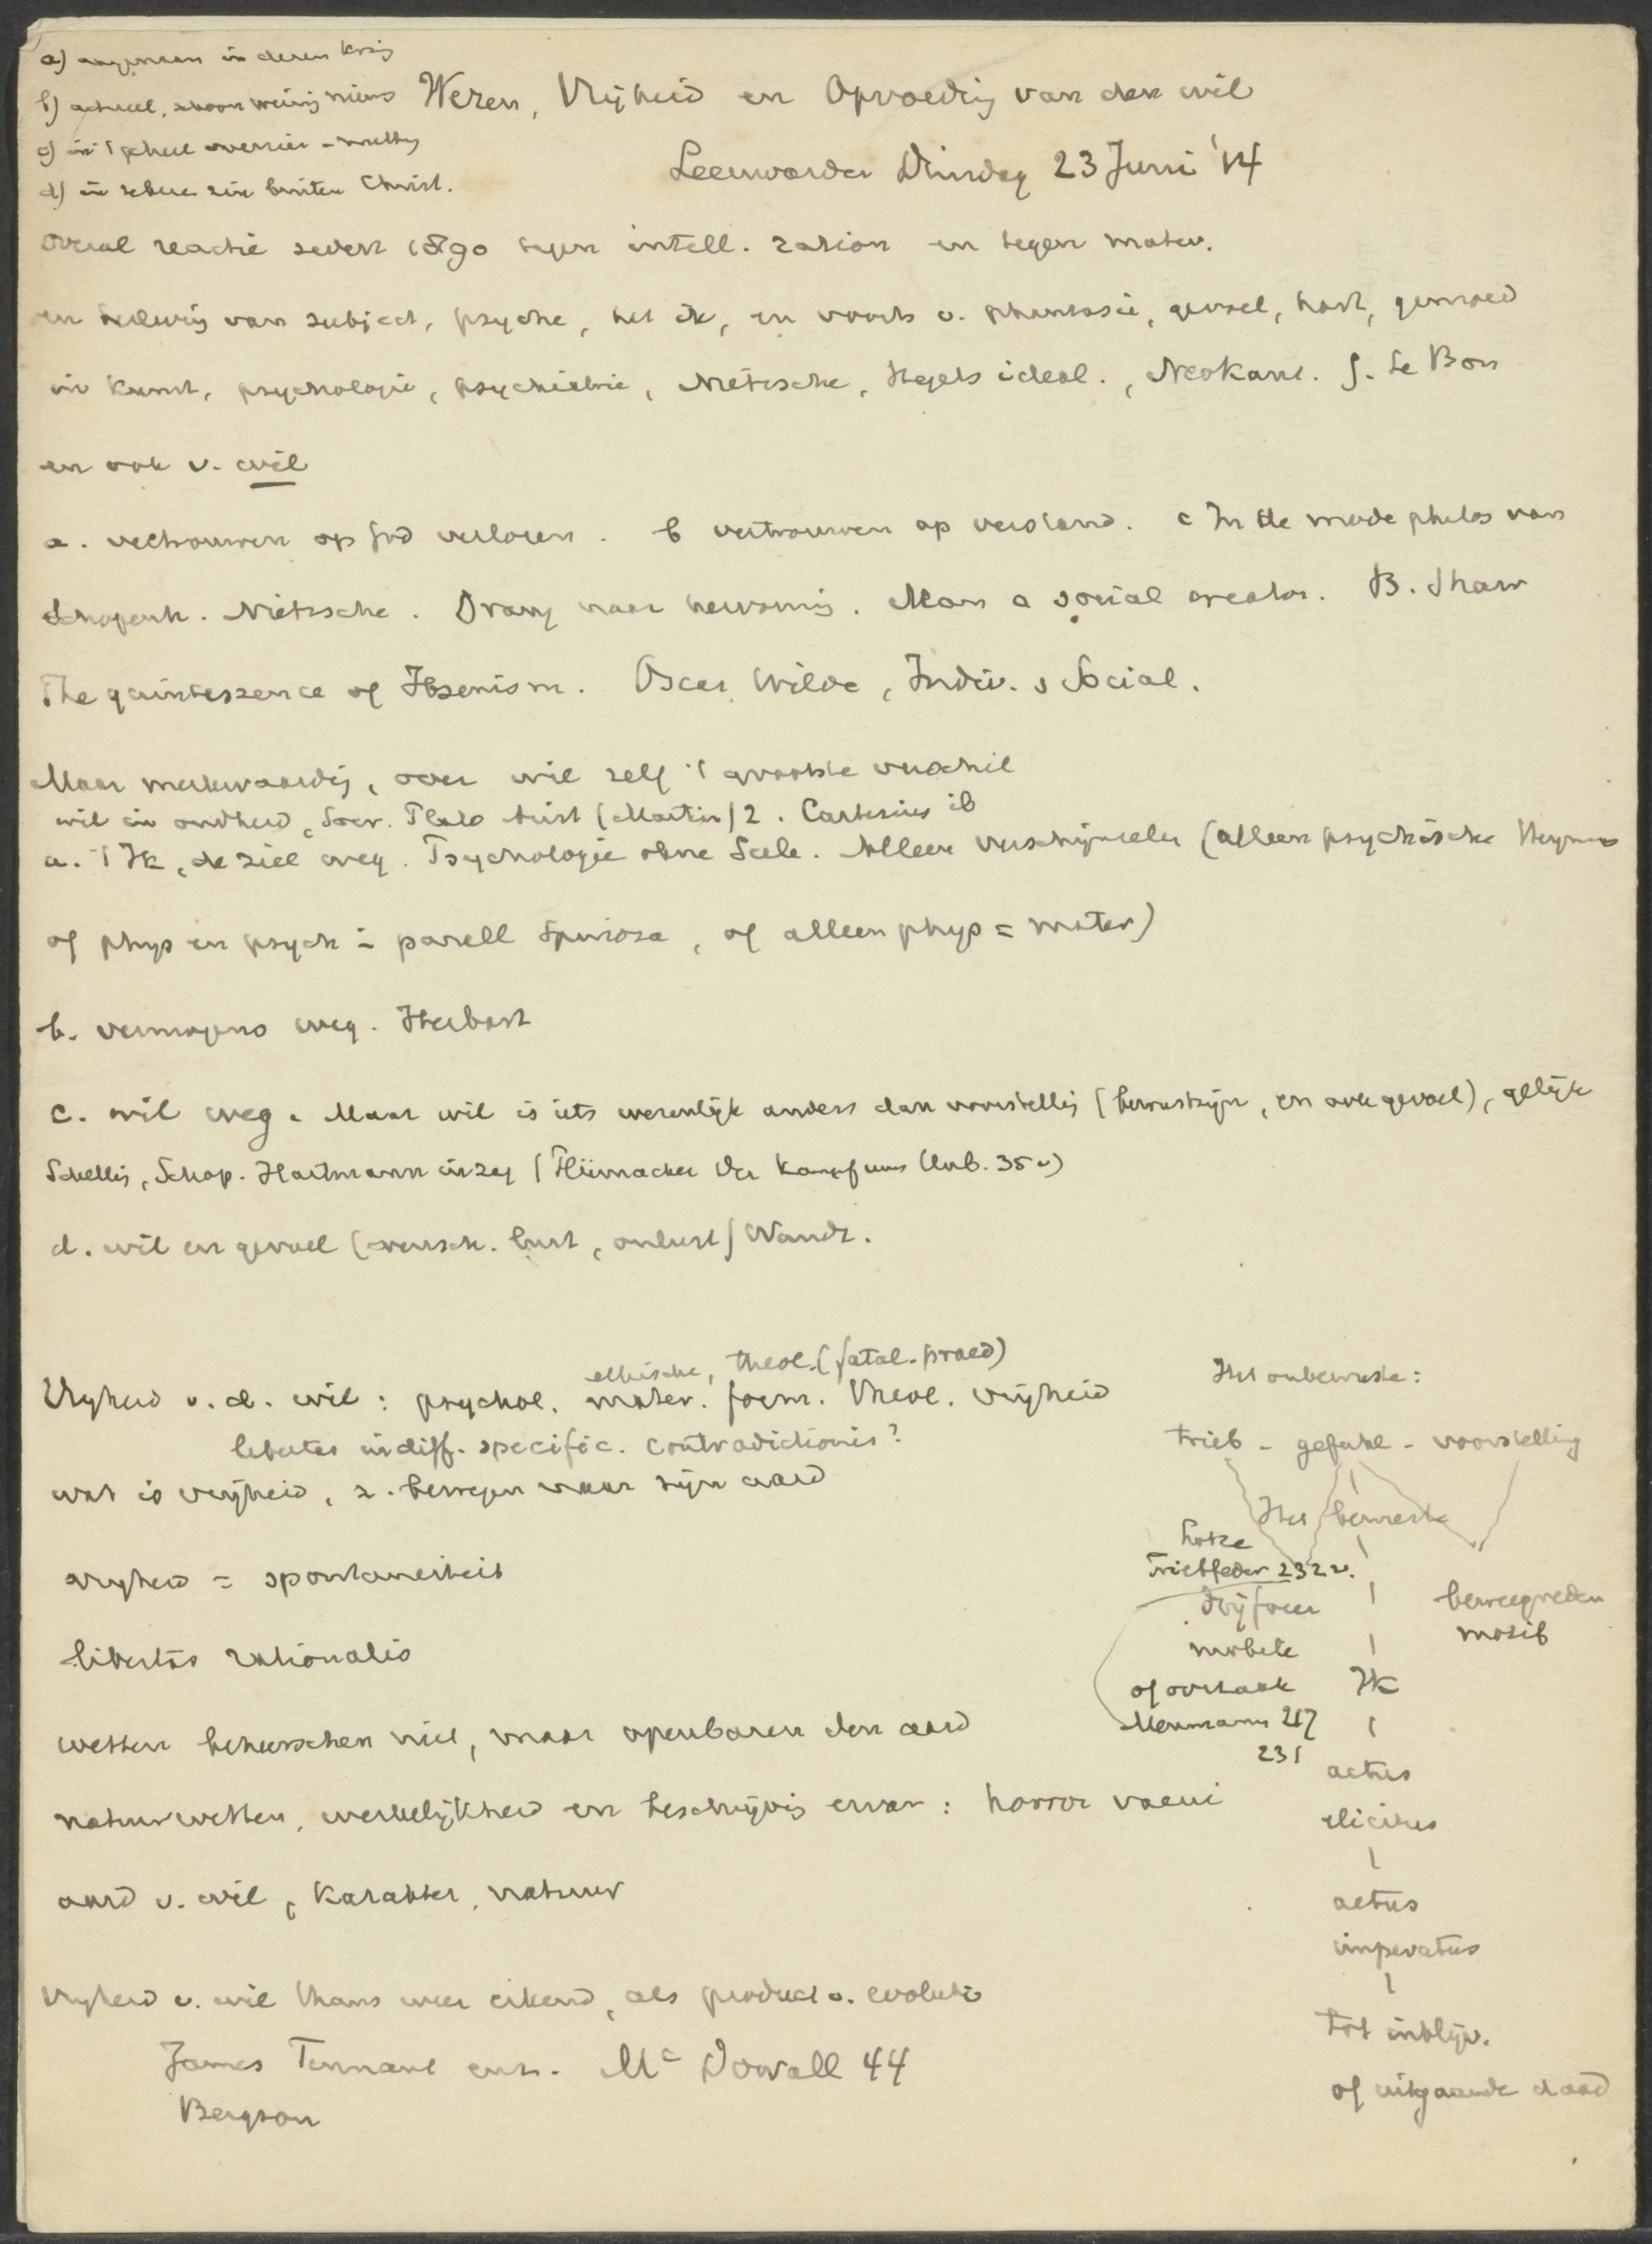 a) aangenaam in dezen kring
b) actueel, schoon weinig nieuws
c) in 't geheel overzien
d) in zekeren zin buiten Christ.
Wezen, Vrijheid en Opvoeding van den wil
Leeuwarden Dinsdag 23 Juni '14
Overal reactie sedert 1890 tegen intell. ration en tegen mater.
en van subject, psyche, het ik, en voorts v. phantasie, gevoel, hart, gemoed
in Kunst, psychologie, psychiatrie, Nietzsche, Hegels ideal., Neokant. G. Le Bon
en ook v. wil
a. vertrouwen op God verloren. b vertrouwen op verstand. c In de mode philos van
Schopenh. Nietzsche. Drang naar hervormg. Man a social creator. B. Shaw
The quintessence of Ibsenism. Oscar Wilde, Indiv. & Social.
Maar merkwaardig, over wil zelf 't grootste verschil
wil in oudheid, Socr. Plato Arist (Martin) 2. Cartesius ib
a. 't Ik, de ziel weg. Psychologie ohne Seele. Alleen verschijnselen (alleen psychische Heymans
of phys en psych = parall Spinoza, of alleen phys = mater)
b. vermogens weg. Herbart
c. wil weg. Maar wil is iets wezenlijk anders dan voorstellig (bewustzijn, en ook gevoel), gelijk
Schellig, Schop. Hartmann inzag (Flümacher Der Kampf ums Unb. 35 v)
d. wil en gevoel (wensch. lust, onlust) Wundt.
ethische, theol. (fatal. praed)
Vrijheid v. d. wil: psychol. mater. form. theol. vrijheid
libertas indiff. specific. contradictionis?
wat is vrijheid, z. bewegen naar zijn aard
vrijheid = spontaneiteit
libertas rationalis
wetten beheerschen niet, maar openbaren den aard
natuurwetten, werkelijkheid en beschrijvig ervan: horror vacui
aard v. wil, karakter, natuur
Vrijheid v. wil thans weer erkend, als product v. evolutie
James Tennant enz. Mc Dowall 44
Bergson
Het onbewuste:
Trieb - gefühl - voorstelling
Het bewuste
Lotze
Triebfeder 232 v.
drijfveer
beweegreden
motief
mobile
of oorzaak
Ik
Meumann 217
231
actus
elicitus
actus
imperatus
tot inblijv.
of uitgaande daad